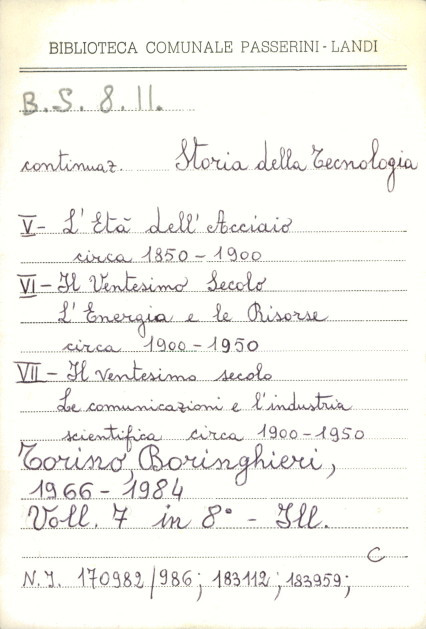 BIBLIOTECA COMUNALE PASSERINI-LANDI
B.S. 8.11.
continuaz. Storia della Tecnologia
V- L'Età dell'Acciaio
circa 1850-1900
VI-Il Ventesimo Secolo
L'Energia e le Risorse
circa 1900-1950
VII-Il ventesimo secolo
Le comunicazioni e l'industria
scientifica circa 1900-1950
Torino, Boringhieri,
1966-1984
Voll. 7 in 8° - Ill.
C
N.I. 170982/986; 183112; 183959;